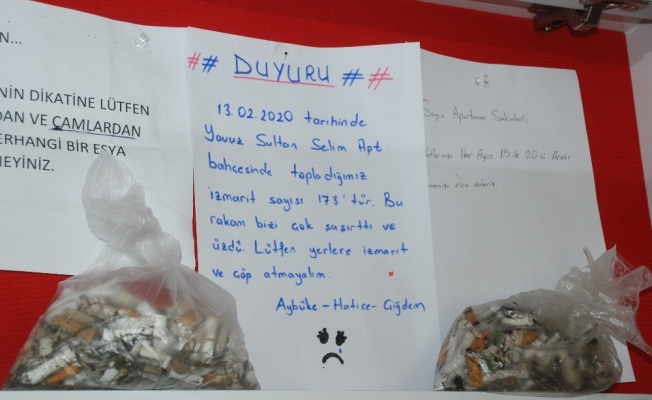 N...
NİN DİKATİNE LÜTFEN
DAN VE ÇAMLARDAN
ERHANGİ BİR EŞYA
MEYİNİZ.
## DUYURU ##
13.02.2020 tarihinde
Yavuz Sultan Selim Apt.
bahçesinde topladığımız
izmarit sayısı 173'tür. Bu
rakam bizi çok şaşırttı ve
üzdü. Lütfen yerlere izmarit
ve çöp atmayalım.
Aybüke-Hatice-Çiğdem
Sayın Apartman Sakinleri,
Her Ayın 15 ile 20'si Arası
rica ederiz.